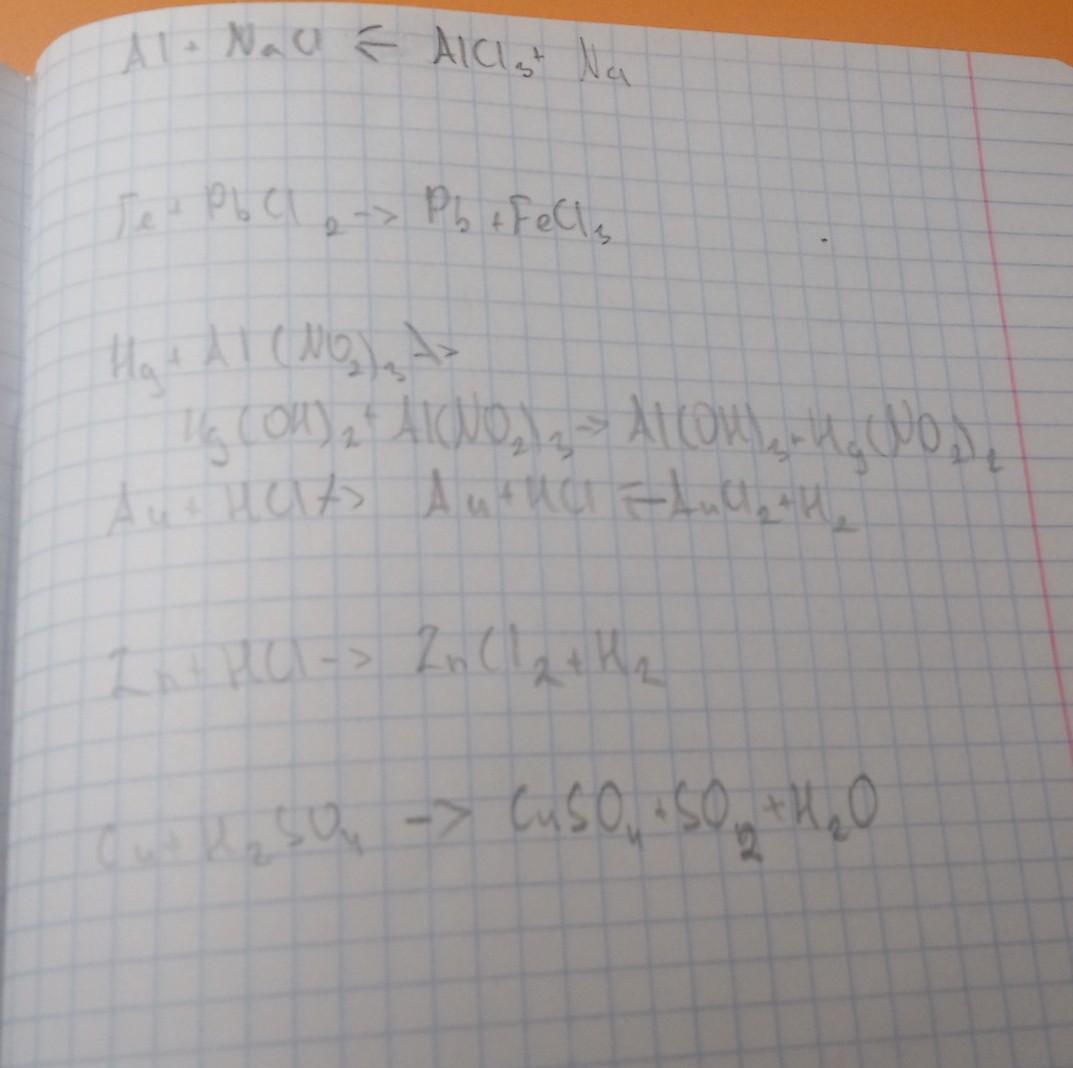 Al + NaCl ⇐ AlCl₃ + Na
Fe + PbCl₂ -> Pb + FeCl₃
Hg + Al(NO₂)₃ ↛
Hg(OH)₂ + Al(NO₂)₃ -> Al(OH)₃ + Hg(NO₂)₂
Au + HCl ↛ Au + HCl ⇐ AuCl₂ + H₂
Zn + HCl -> ZnCl₂ + H₂
Cu + H₂SO₄ -> CuSO₄ + SO₂ + H₂O